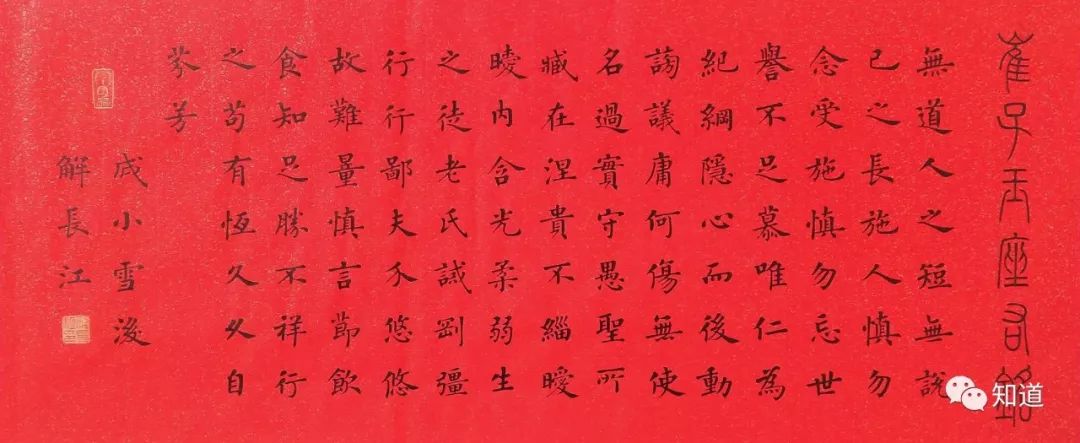 崔子玉座右銘
無道人之短無說
己之長施人慎勿
念受施慎勿忘世
譽不足慕唯仁為
紀綱隱心而後動
謗議庸何傷無使
名過實守愚聖所
臧在涅貴不緇曖
曖內含光柔弱生
之徒老氏誡剛彊
行行鄙夫介悠悠
故難量慎言節飲
食知足勝不祥行
之苟有恆久久自
芬芳
戌小雪後
解長江
知道